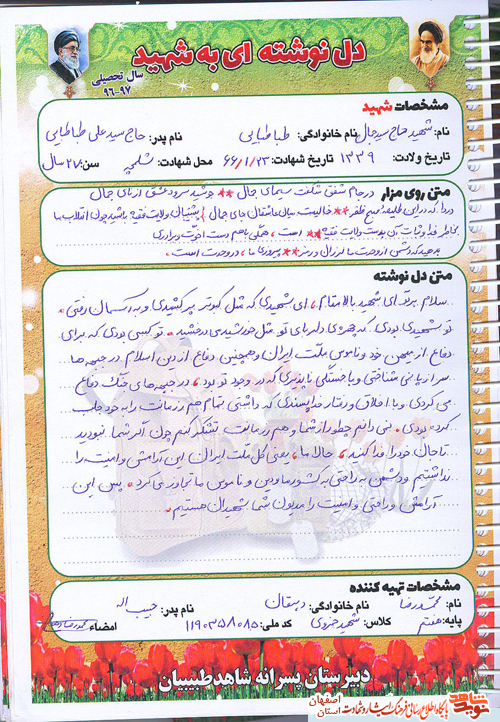 دل نوشته ای به شهید
سال تحصیلی
۹۶-۹۷
مشخصات شهید
نام: شهید حاج سید جمال نام خانوادگی: طباطبایی نام پدر: حاج سید علی طباطبایی
تاریخ ولادت: ۱۳۳۹ تاریخ شهادت: ۶۶/۱/۲۳ محل شهادت: شلمچه سن: ۲۷ سال
متن روی مزار در جام شفق شکفت سیمای جمال ** جوشید سرود عشق از نای جمال
دردا که در این طلیعه صبح ظفر ** خالیست میان عاشقان جای جمال پشتیبان ولایت فقیه باشید چون انقلاب ما
بخاطر خدا و ثبات آن بدست ولایت فقیه است، همگی باهم دست اخوت و برادری
بدهید که دشمن از وحدت ما لرزان و رمز پیروزی ما، در وحدت است.
متن دل نوشته
سلام بر تو ای شهید بالا مقام، ای شهیدی که مثل کبوتر پر کشیدی و به آسمان رفتی.
تو شهیدی بودی که چهره ی دلربای تو مثل خورشید می درخشید. تو کسی بودی که برای
دفاع از میهن خود و ناموس ملت ایران و همچنین دفاع از دین اسلام در جبهه ها
سر از پا نمی شناختی و با خستگی ناپذیری که در وجود تو بود، در جبهه های جنگ دفاع
می کردی و با اخلاق و رفتار خداپسندی که داشتی تمام هم رزمانت را به خود جلب
کرده بودی. نمی دانم چطور از شما و هم رزمانت تشکر کنم چون اگر شما نبودید
تا جان خود را فدا کنند، حالا ما، یعنی کل ملت ایران این آرامش و امنیت را
نداشتیم و دشمن به راحتی به کشور ما و دین و ناموس ما تجاوز می کرد. پس این
آرامش و راحتی و امنیت را مدیون شما شهیدان هستیم.
مشخصات تهیه کننده
نام: محمدرضا نام خانوادگی: دهقان نام پدر: حبیب اله
پایه: هفتم کلاس: شهید خبروی کد ملی: ۱۱۹۰۳۵۸۰۸۵ امضاء
دبیرستان پسرانه شاهد طبیبیان
نوید شاهد
پایگاه اطلاع رسانی فرهنگ ایثار و شهادت استان اصفهان